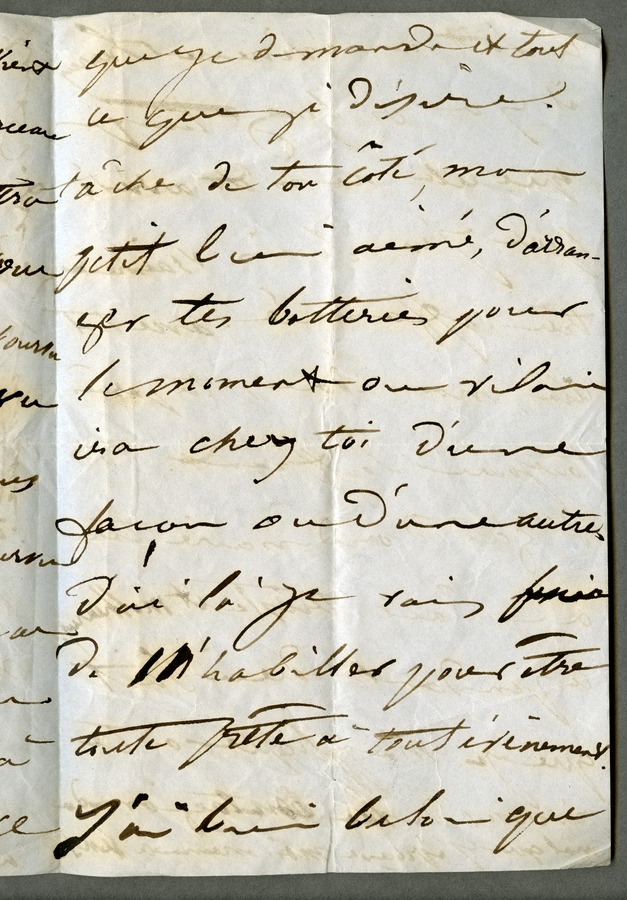 que je demande et tout
ce que je désire.
tâche de ton côté, mon
petit bien aimé, d'arran-
ger tes batteries pour
le moment ou vilain
ira chez toi d'une
façon ou d'une autre,
d'ici là je vais
de m'habiller pour être
toute prête à tout évènement.
J'ai bien besoin que